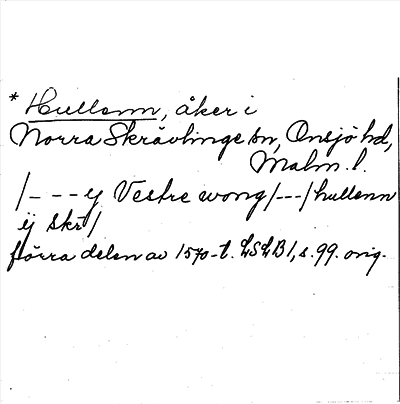 * Hullenn, åker i
Norra Skrävlinge sn, Onsjö hd,
Malm. l.
/ - - - ej Vestre wong / - - - / hullenn
ij skr /
förra delen av 1570-t. LSLB 1, s. 99. orig.